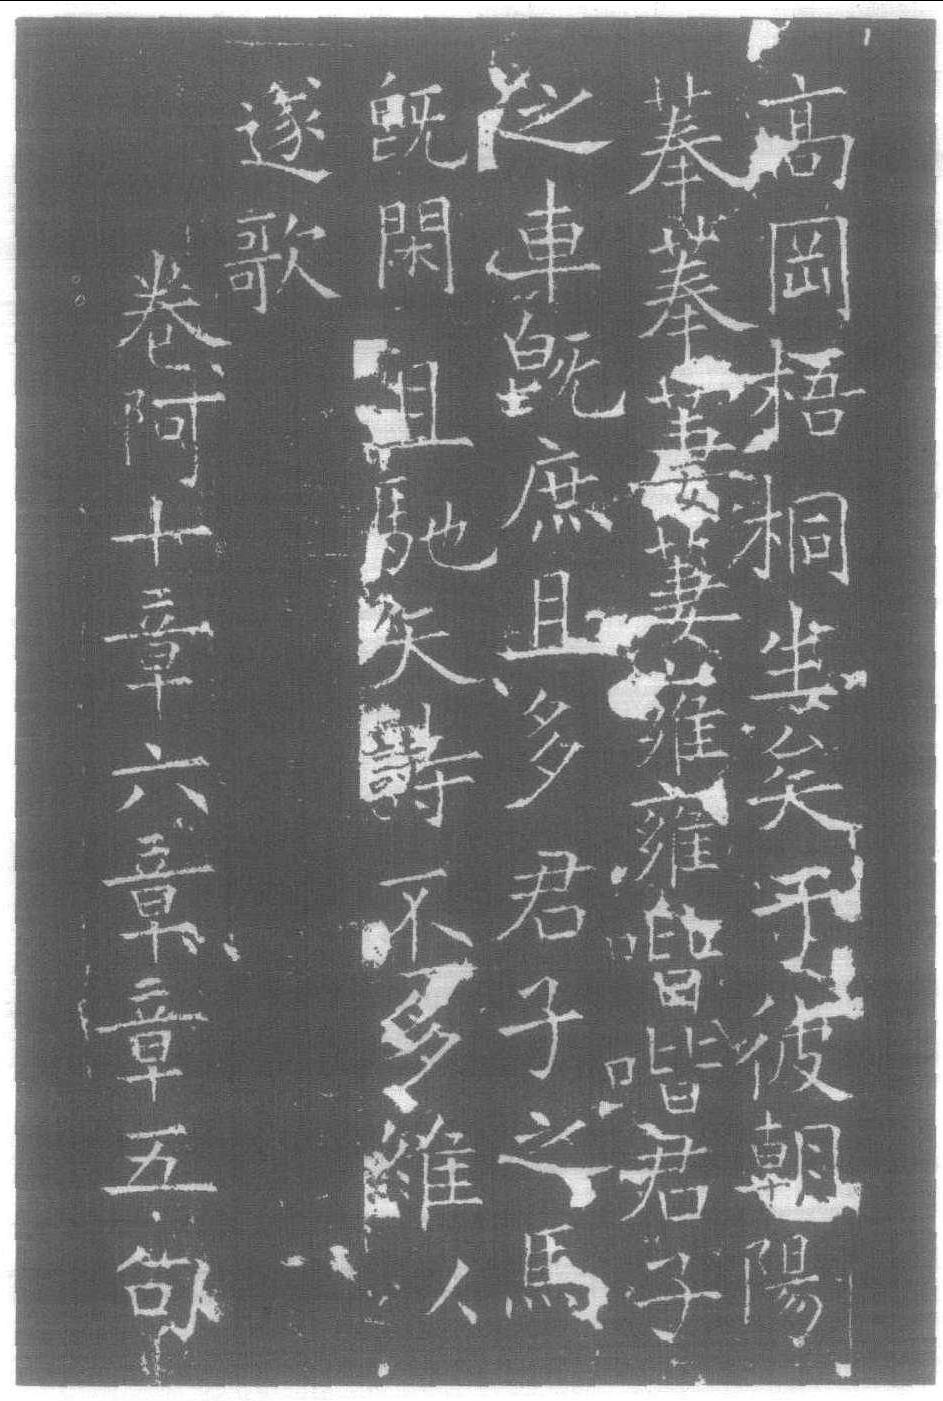 高岡梧桐生矣于彼朝陽
菶菶萋萋雍雍喈喈君子
之車既庶且多君子之馬
既閑且馳矢詩不多維以
遂歌
卷阿十章六章章五句